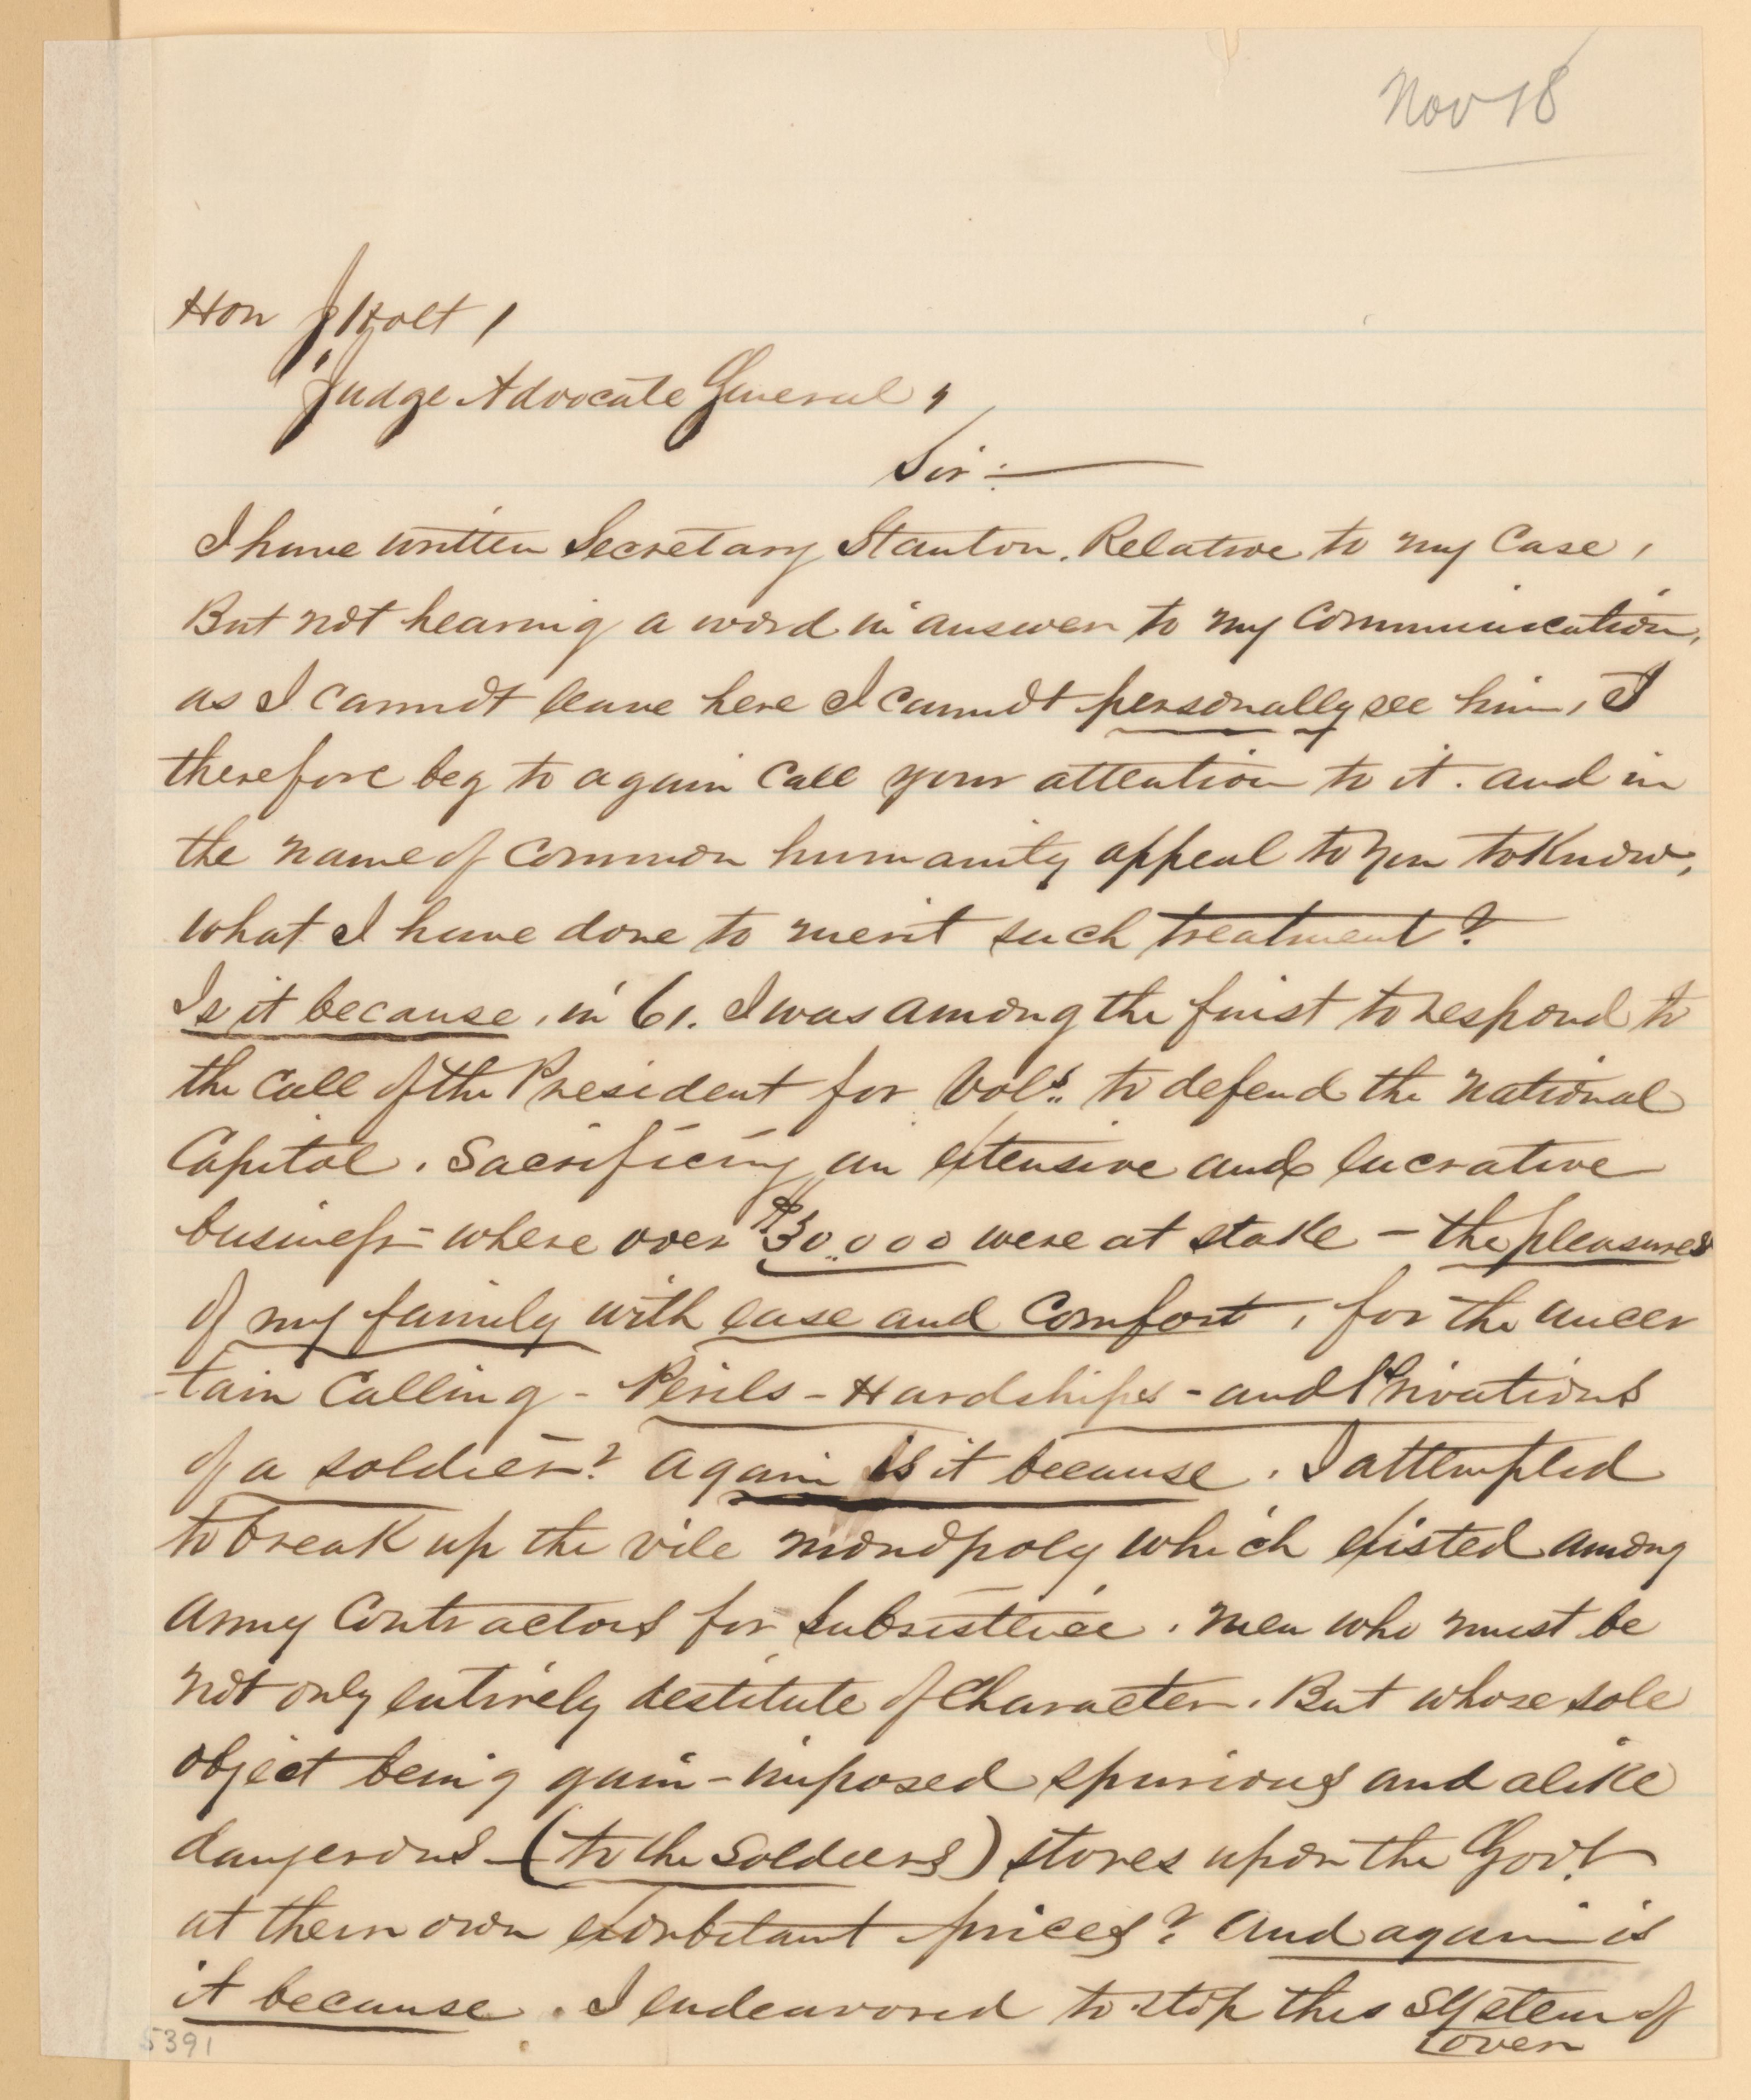 Nov 18
Hon J Holt,
Judge Advocate General,
Sir:—
I have written Secretary Stanton. Relative to my Case,
But not hearing a word in answer to my Communication,
as I cannot leave here I cannot personally see him, I
therefore beg to again Call your attention to it. and in
the name of Common humanity appeal to you to Know,
what I have done to merit such treatment?
Is it because, in 61. I was among the first to respond to
the Call of the President for Vols. to defend the National
Capitol. Sacrificing an extensive and lucrative
business - where over $30.000 were at stake - the pleasures
of my family with ease and Comfort, for the uncer
-tain Calling - Perils - Hardships - and Privations
of a soldier? Again is it because. I attempted
to break up the vile monopoly which existed among
Army Contractors for Subsistence. Men who must be
not only entirely destitute of Character. But whose sole
object being gain - imposed spurious and alike
dangerous - (to the Soldiers) stores upon the Govt.
at their own exorbitant prices? And again is
it because. I endeavored to stop this system of
over
5391